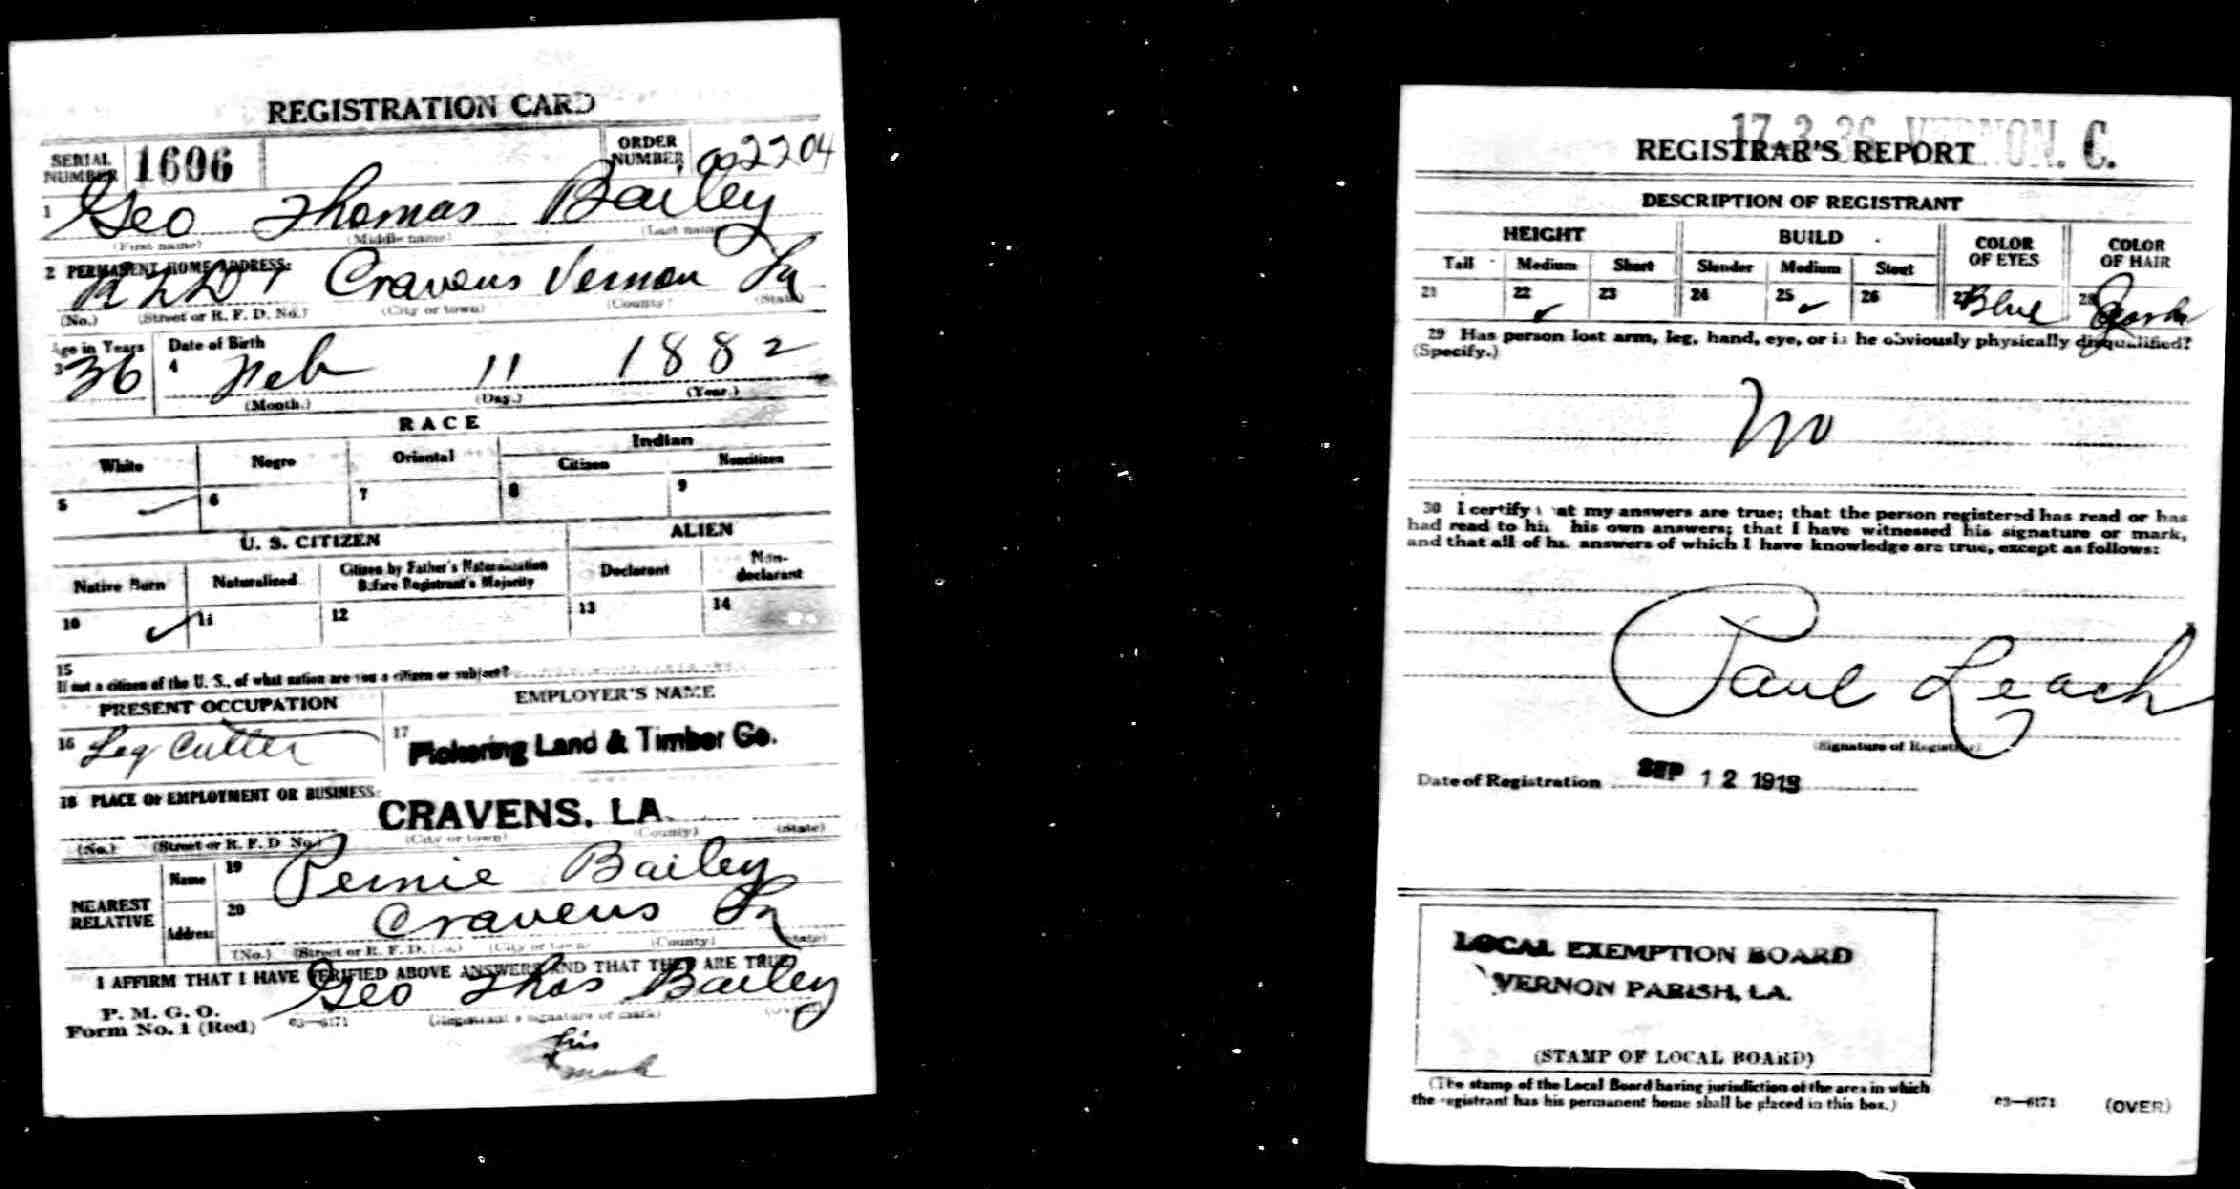 REGISTRATION CARD
SERIAL NUMBER 1606 ORDER NUMBER 2204
1 Geo Thomas Bailey
(First name) (Middle name) (Last name)
2 PERMANENT HOME ADDRESS:
Cravens Vernon La
(No.) (Street or R. F. D. No.) (City or town) (County) (State)
Age in Years Date of Birth
3 36 4 Feb 11 1882
(Month.) (Day.) (Year.)
RACE
White Negro Oriental Indian
Citizen Noncitizen
5 ✓ 6 7 8 9
U. S. CITIZEN ALIEN
Native Born Naturalized Citizen by Father's Naturalization Before Registrant's Majority Declarant Non-declarant
10 ✓ 11 12 13 14
15
If not a citizen of the U. S., of what nation are you a citizen or subject?
PRESENT OCCUPATION EMPLOYER'S NAME
16 Log Cutter 17 Pickering Land & Timber Co.
18 PLACE OF EMPLOYMENT OR BUSINESS:
CRAVENS, LA.
(No.) (Street or R. F. D. No.) (City or town) (County) (State)
NEAREST RELATIVE
Name 19 Pernie Bailey
Address 20 Cravens La
(No.) (Street or R. F. D. No.) (City or town) (County) (State)
I AFFIRM THAT I HAVE VERIFIED ABOVE ANSWERS AND THAT THEY ARE TRUE
P. M. G. O.
Form No. 1 (Red) 03—6171 Geo Thos Bailey
(Registrant's signature or mark) (OVER)
his
x
mark
17 3 36 VERNON. C.
REGISTRAR'S REPORT
DESCRIPTION OF REGISTRANT
HEIGHT BUILD COLOR OF EYES COLOR OF HAIR
Tall Medium Short Slender Medium Stout
21 22 ✓ 23 24 25 ✓ 26 27 Blue 28 Dark
29 Has person lost arm, leg, hand, eye, or is he obviously physically disqualified?
(Specify.)
No
30 I certify that my answers are true; that the person registered has read or has
had read to him his own answers; that I have witnessed his signature or mark,
and that all of his answers of which I have knowledge are true, except as follows:
Paul Leach
(Signature of Registrar)
Date of Registration SEP 12 1918
LOCAL EXEMPTION BOARD
VERNON PARISH, LA.
(STAMP OF LOCAL BOARD)
(The stamp of the Local Board having jurisdiction of the area in which
the registrant has his permanent home shall be placed in this box.)
03—6171 (OVER)